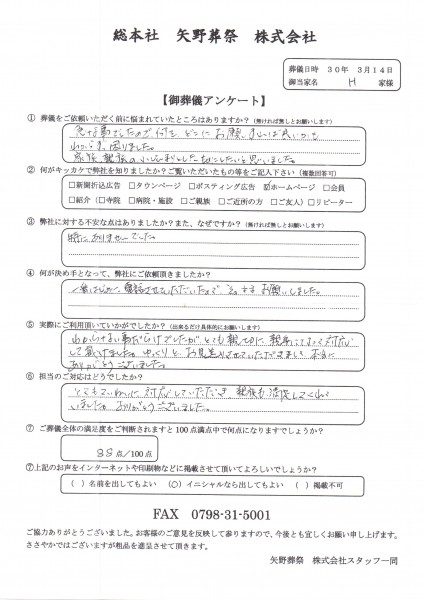 総本社 矢野葬祭 株式会社
葬儀日時 30年 3月14日
御当家名 H 家様
【御葬儀アンケート】
① 葬儀をご依頼いただく前に悩まれていたところはありますか？(無ければ無しとお願いします)
急な事でしたので何を、どこにお願いすれば良いかも
わからず、困りました。
② 何がキッカケで弊社を知りましたか？ご覧いただいたもの等をご記入下さい(複数回答可)
□新聞折込広告 □タウンページ □ポスティング広告 ☑ホームページ □会員
□紹介(□寺院 □病院・施設 □ご親族 □ご近所の方 □ご友人) □リピーター
③ 弊社に対する不安な点はありましたか？また、なぜですか？(無ければ無しとお願いします)
特にありませんでした。
④ 何が決め手となって、弊社にご依頼頂きましたか？
一番はじめに電話させていただいたので、そのままお願いしました。
⑤ 実際にご利用頂いていかがでしたか？(出来るだけ具体的にお願いします)
わからない事だらけでしたが、とても親切に、親身になって対応
して頂けました。ゆっくりと、お見送りさせていただきまして、本当に
ありがとうございました。
⑥ 担当のご対応はどうでしたか？
とてもていねいに対応していただき、親族も満足してくれ
いました。ありがとうございました。
⑦ ご葬儀全体の満足度をご判断されますと100点満点中で何点になりますでしょうか？
98点/100点
⑦上記のお声をインターネットや印刷物などに掲載させて頂いてよろしいでしょうか？
( )名前を出してもよい (○)イニシャルなら出してもよい ( )掲載不可
FAX 0798-31-5001
ご協力ありがとうございました。お客様のご意見を反映して参りますので、今後とも宜しくお願い申し上げます。
ささやかではございますが粗品を進呈させて頂きます。
矢野葬祭 株式会社スタッフ一同